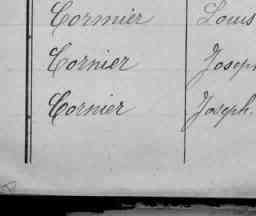 Cormier Louis
Cornier Joseph
Cornier Joseph.